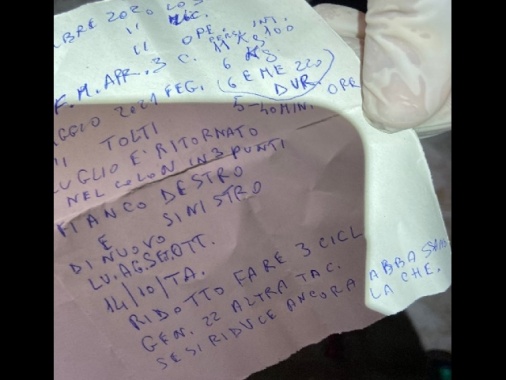 BRE 2020 COS
" LIC.
" OPE. INT.
F.M. APR. 3 C. PERS 100
6 KG
AGGIO 2021 FEG. (6 EME 220
DUR. ORE
5-40 MIN.
" TOLTI
LUGLIO E' RITORNATO
NEL COLON IN 3 PUNTI
FIANCO DESTRO
E SINISTRO
DI NUOVO
LU. AG. SE OTT.
14/10/TA.
RIDOTTO FARE 3 CICL
GEN. 22 ALTRA TAC.
SE SI RIDUCE ANCORA
ABBASSAN
LA CHE.